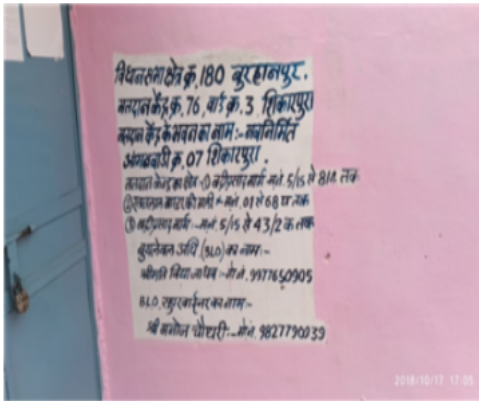 विधानसभा क्षेत्र क्र. 180 बुरहानपुर.
मतदान केंद्र क्र. 76, वार्ड क्र. 3 शिकारपुरा
मतदान केंद्र के भवन का नाम :- नवनिर्मित
आंगनवाडी क्र. 07 शिकारपुरा.
मतदान केन्द्र का क्षेत्र ① मार्ग म.नं. 5/15 से 814 तक
② म.नं. 01 से 68 तक
③ मार्ग :- म.नं. 5/15 से 43/2 क तक
बुथ लेवल (BLO) का नाम :-
श्रीमति विद्या :- मो.नं. 9977650905
B.L.O. सुपरवाईजर का नाम :-
श्री मनोज चौधरी :- मो.नं. 9827790039
2018/10/17 17:05